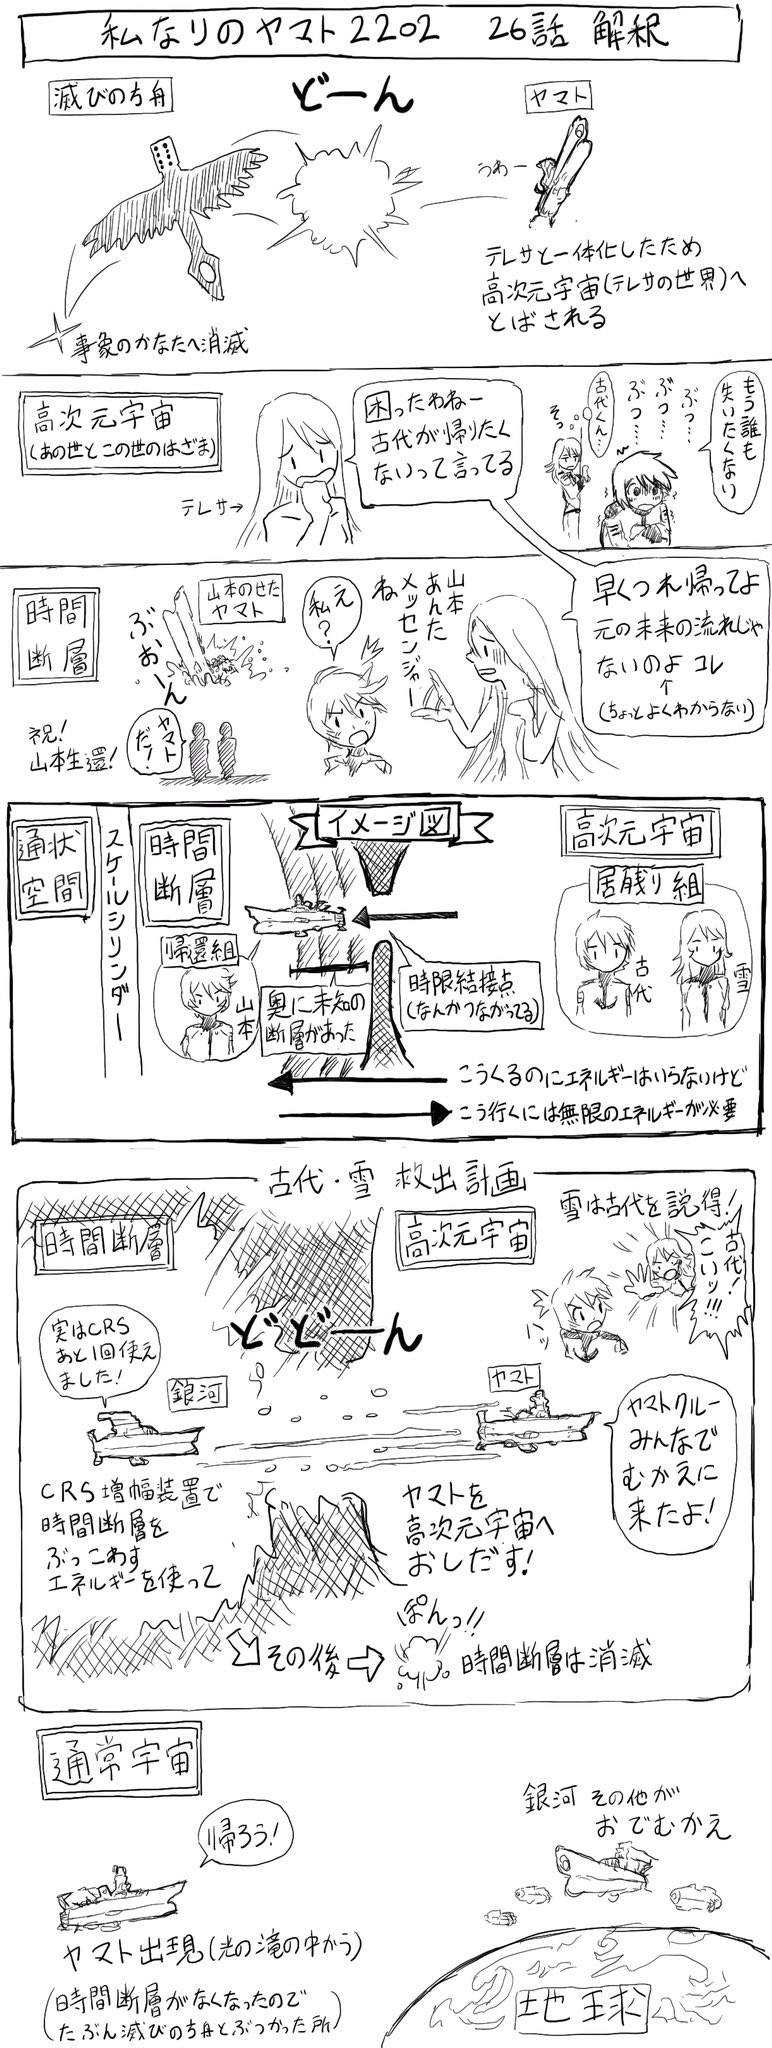 私なりのヤマト2202　26話 解釈
滅びの方舟
どーん
ヤマト
うわー
テレサと一体化したため
高次元宇宙(テレサの世界)へ
とばされる
事象のかなたへ消滅
高次元宇宙
(あの世とこの世のはざま)
テレサ→
困ったわねー
古代が帰りたく
ないって言ってる
もう誰も
失いたくない
ぶつ…
ぶつ…
ぶつ…
古代くん…
そっ
早くつれ帰ってよ
元の未来の流れじゃ
ないのよ コレ
↑
(ちょっとよくわからない)
時間
断層
山本のせた
ヤマト
ぶおーん
ヤマト
だ！
祝！
山本生還！
え
私？
山本
あんた
メッセンジャー
ね
イメージ図
通状
空間
スケールシリンダー
時間
断層
高次元宇宙
居残り組
古代
雪
帰還組
山本
奥に未知の
断層があった
時限結接点
(なんかつながってる)
こうくるのにエネルギーはいらないけど
こう行くには無限のエネルギーが必要
古代・雪 救出計画
時間断層
高次元宇宙
雪は古代を説得！
古代！
こいッ!!!
ハッ
どどーん
実はCRS
あと1回使え
ました！
銀河
ヤマト
ヤマトクルー
みんなで
むかえに
来たよ！
CRS増幅装置で
時間断層を
ぶっこわす
エネルギーを使って
ヤマトを
高次元宇宙へ
おしだす！
その後
ぽんっ!!
時間断層は消滅
通常宇宙
帰ろう！
ヤマト出現(光の滝の中から)
(時間断層がなくなったので
たぶん滅びの方舟とぶつかった所)
銀河 その他が
おでむかえ
地球